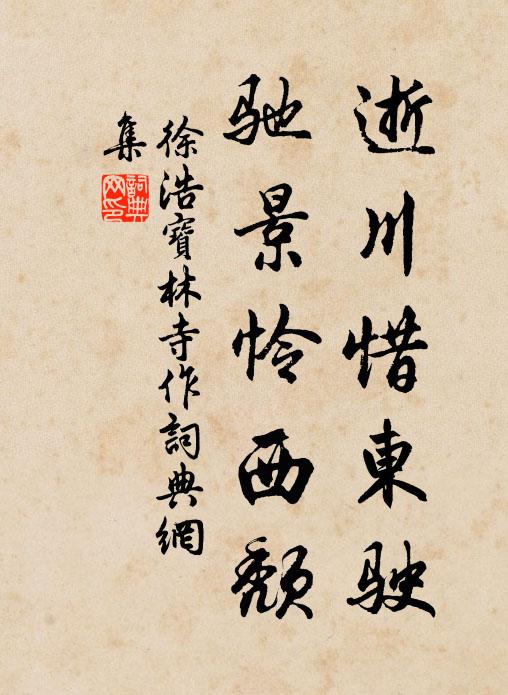 逝川惜東駛
馳景怜西頹
徐浩寶林寺作詞典網
集
詞典
网印